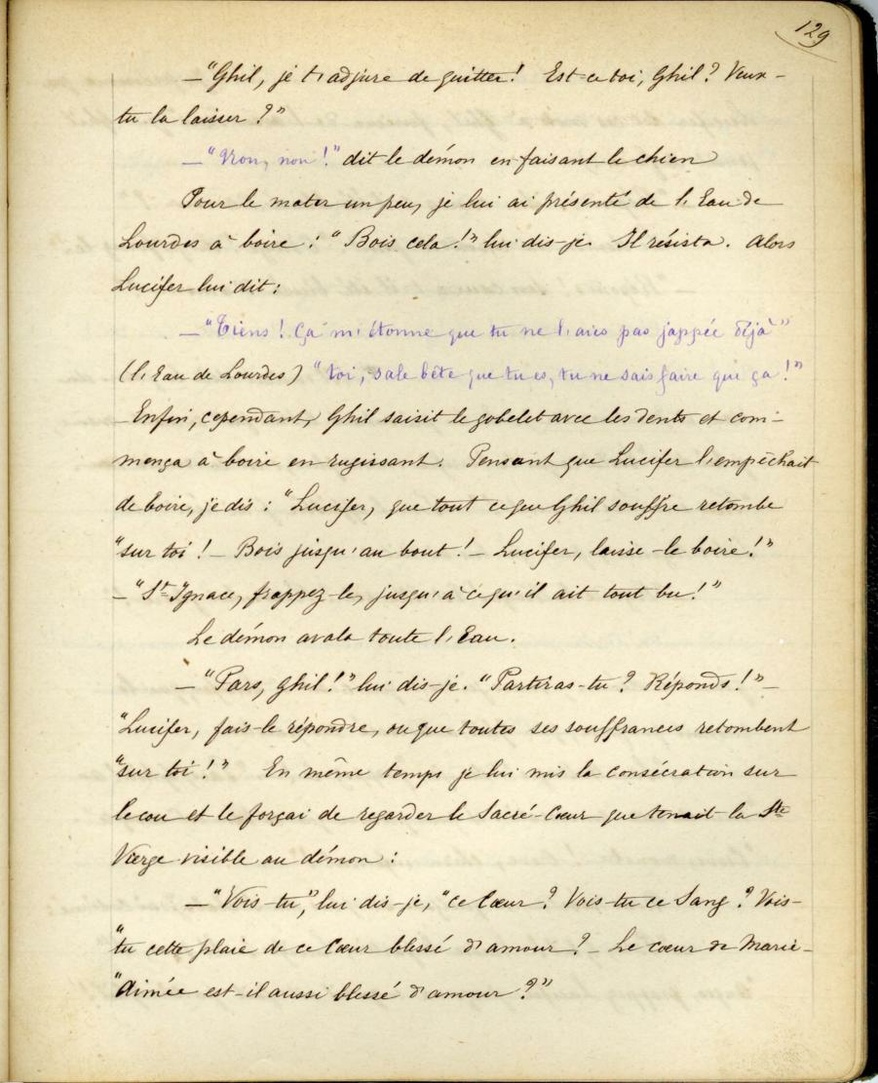 129
—"Ghil, je t'adjure de quitter! Est-ce toi, Ghil? Veux-
tu la laisser?"
—"Non, non!" dit le démon en faisant le chien
Pour le mater un peu, je lui ai présenté de l'Eau de
Lourdes à boire: "Bois cela!" lui dis-je. Il résista. Alors
Lucifer lui dit:
—"Tiens! Ça m'étonne que tu ne l'aies pas jappée déjà"
(l'Eau de Lourdes) "toi, sale bête que tu es, tu ne sais faire que ça!"
Enfin, cependant, Ghil saisit le gobelet avec les dents et com-
mença à boire en rugissant. Pensant que Lucifer l'empêchait
de boire, je dis: "Lucifer, que tout ce que Ghil souffre retombe
"sur toi! — Bois jusqu'au bout! — Lucifer, laisse-le boire!"
—"St Ignace, frappez-le, jusqu'à ce qu'il ait tout bu!"
Le démon avala toute l'Eau.
—"Pars, Ghil!" lui dis-je. "Partiras-tu? Réponds!"—
"Lucifer, fais-le répondre, ou que toutes ses souffrances retombent
"sur toi!" En même temps je lui mis la consécration sur
le cou et le forçai de regarder le Sacré-Cœur que tenait la Ste
Vierge visible au démon:
—"Vois-tu", lui dis-je, "ce Cœur? Vois-tu ce Sang? Vois-
"tu cette plaie de ce Cœur blessé d'amour? — Le cœur de Marie-
"Aimée est-il aussi blessé d'amour?"